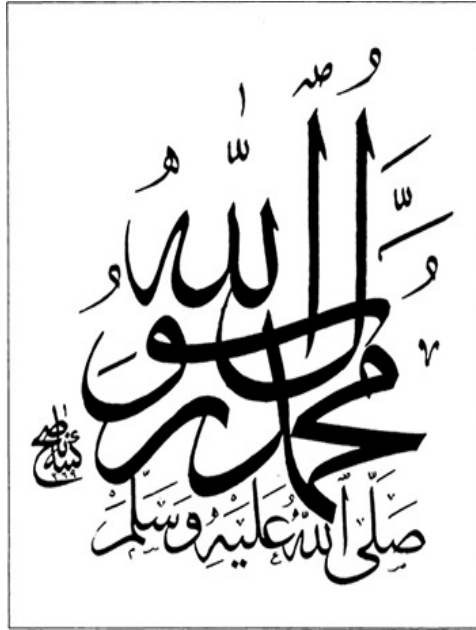 محمد رسول اللهُ
صَلَّى ٱللهُ عَلَيْهِ وَسَلَّمَ